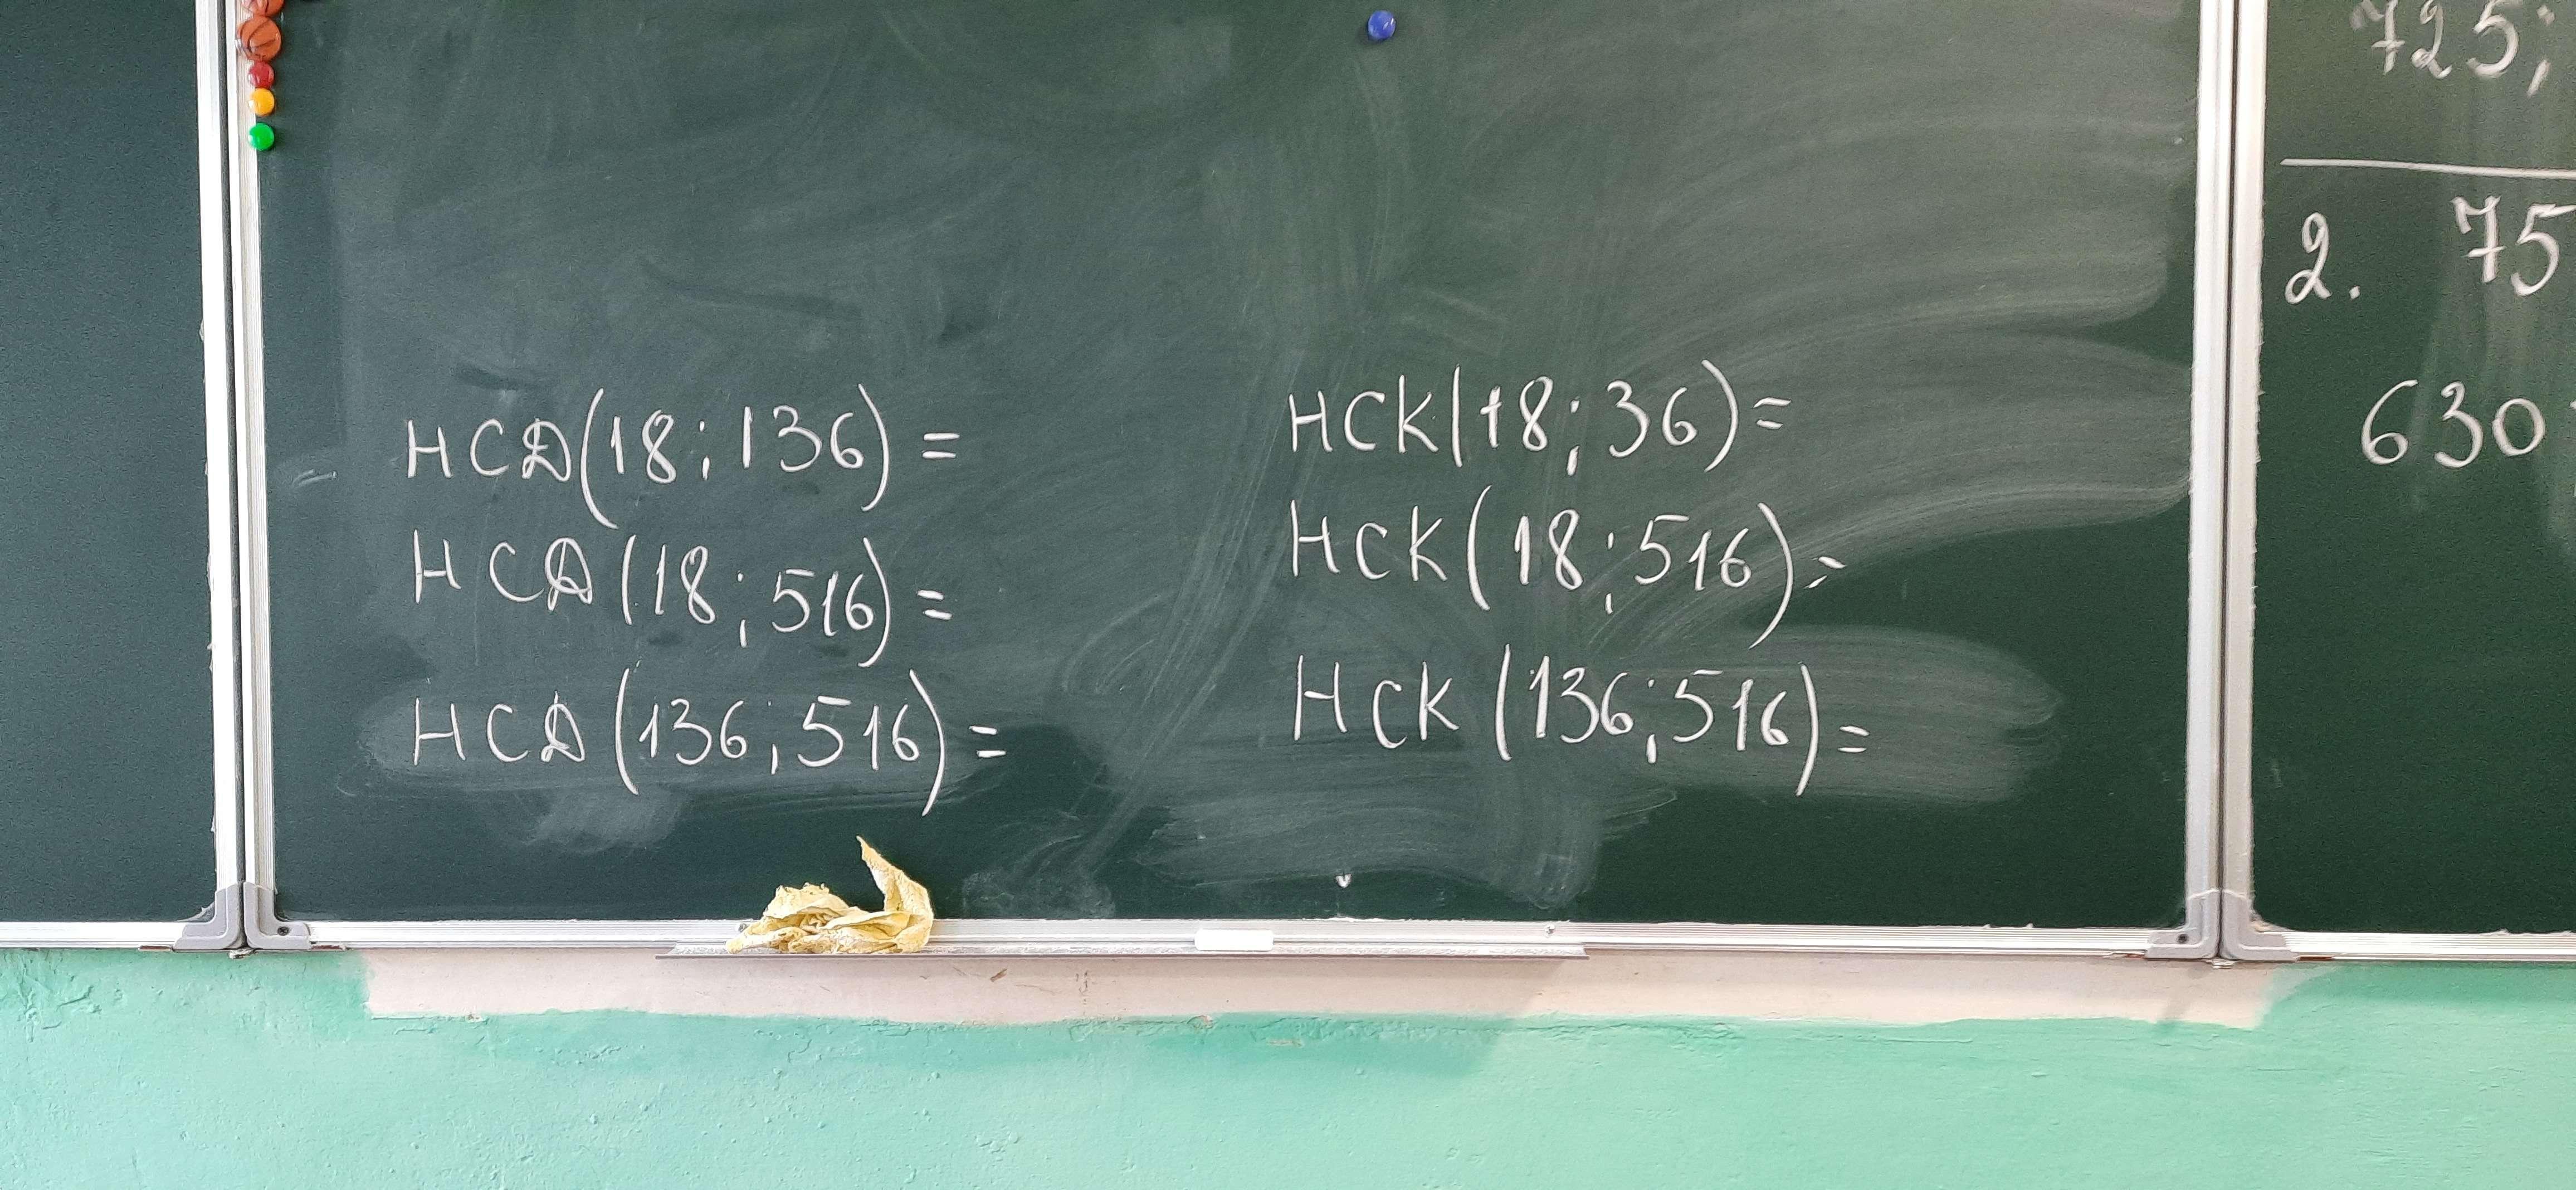 НСД(18; 136) =
НСД(18; 516) =
НСД(136; 516) =
НСК(18; 36) =
НСК(18; 516) =
НСК(136; 516) =
725;
2. 75
630